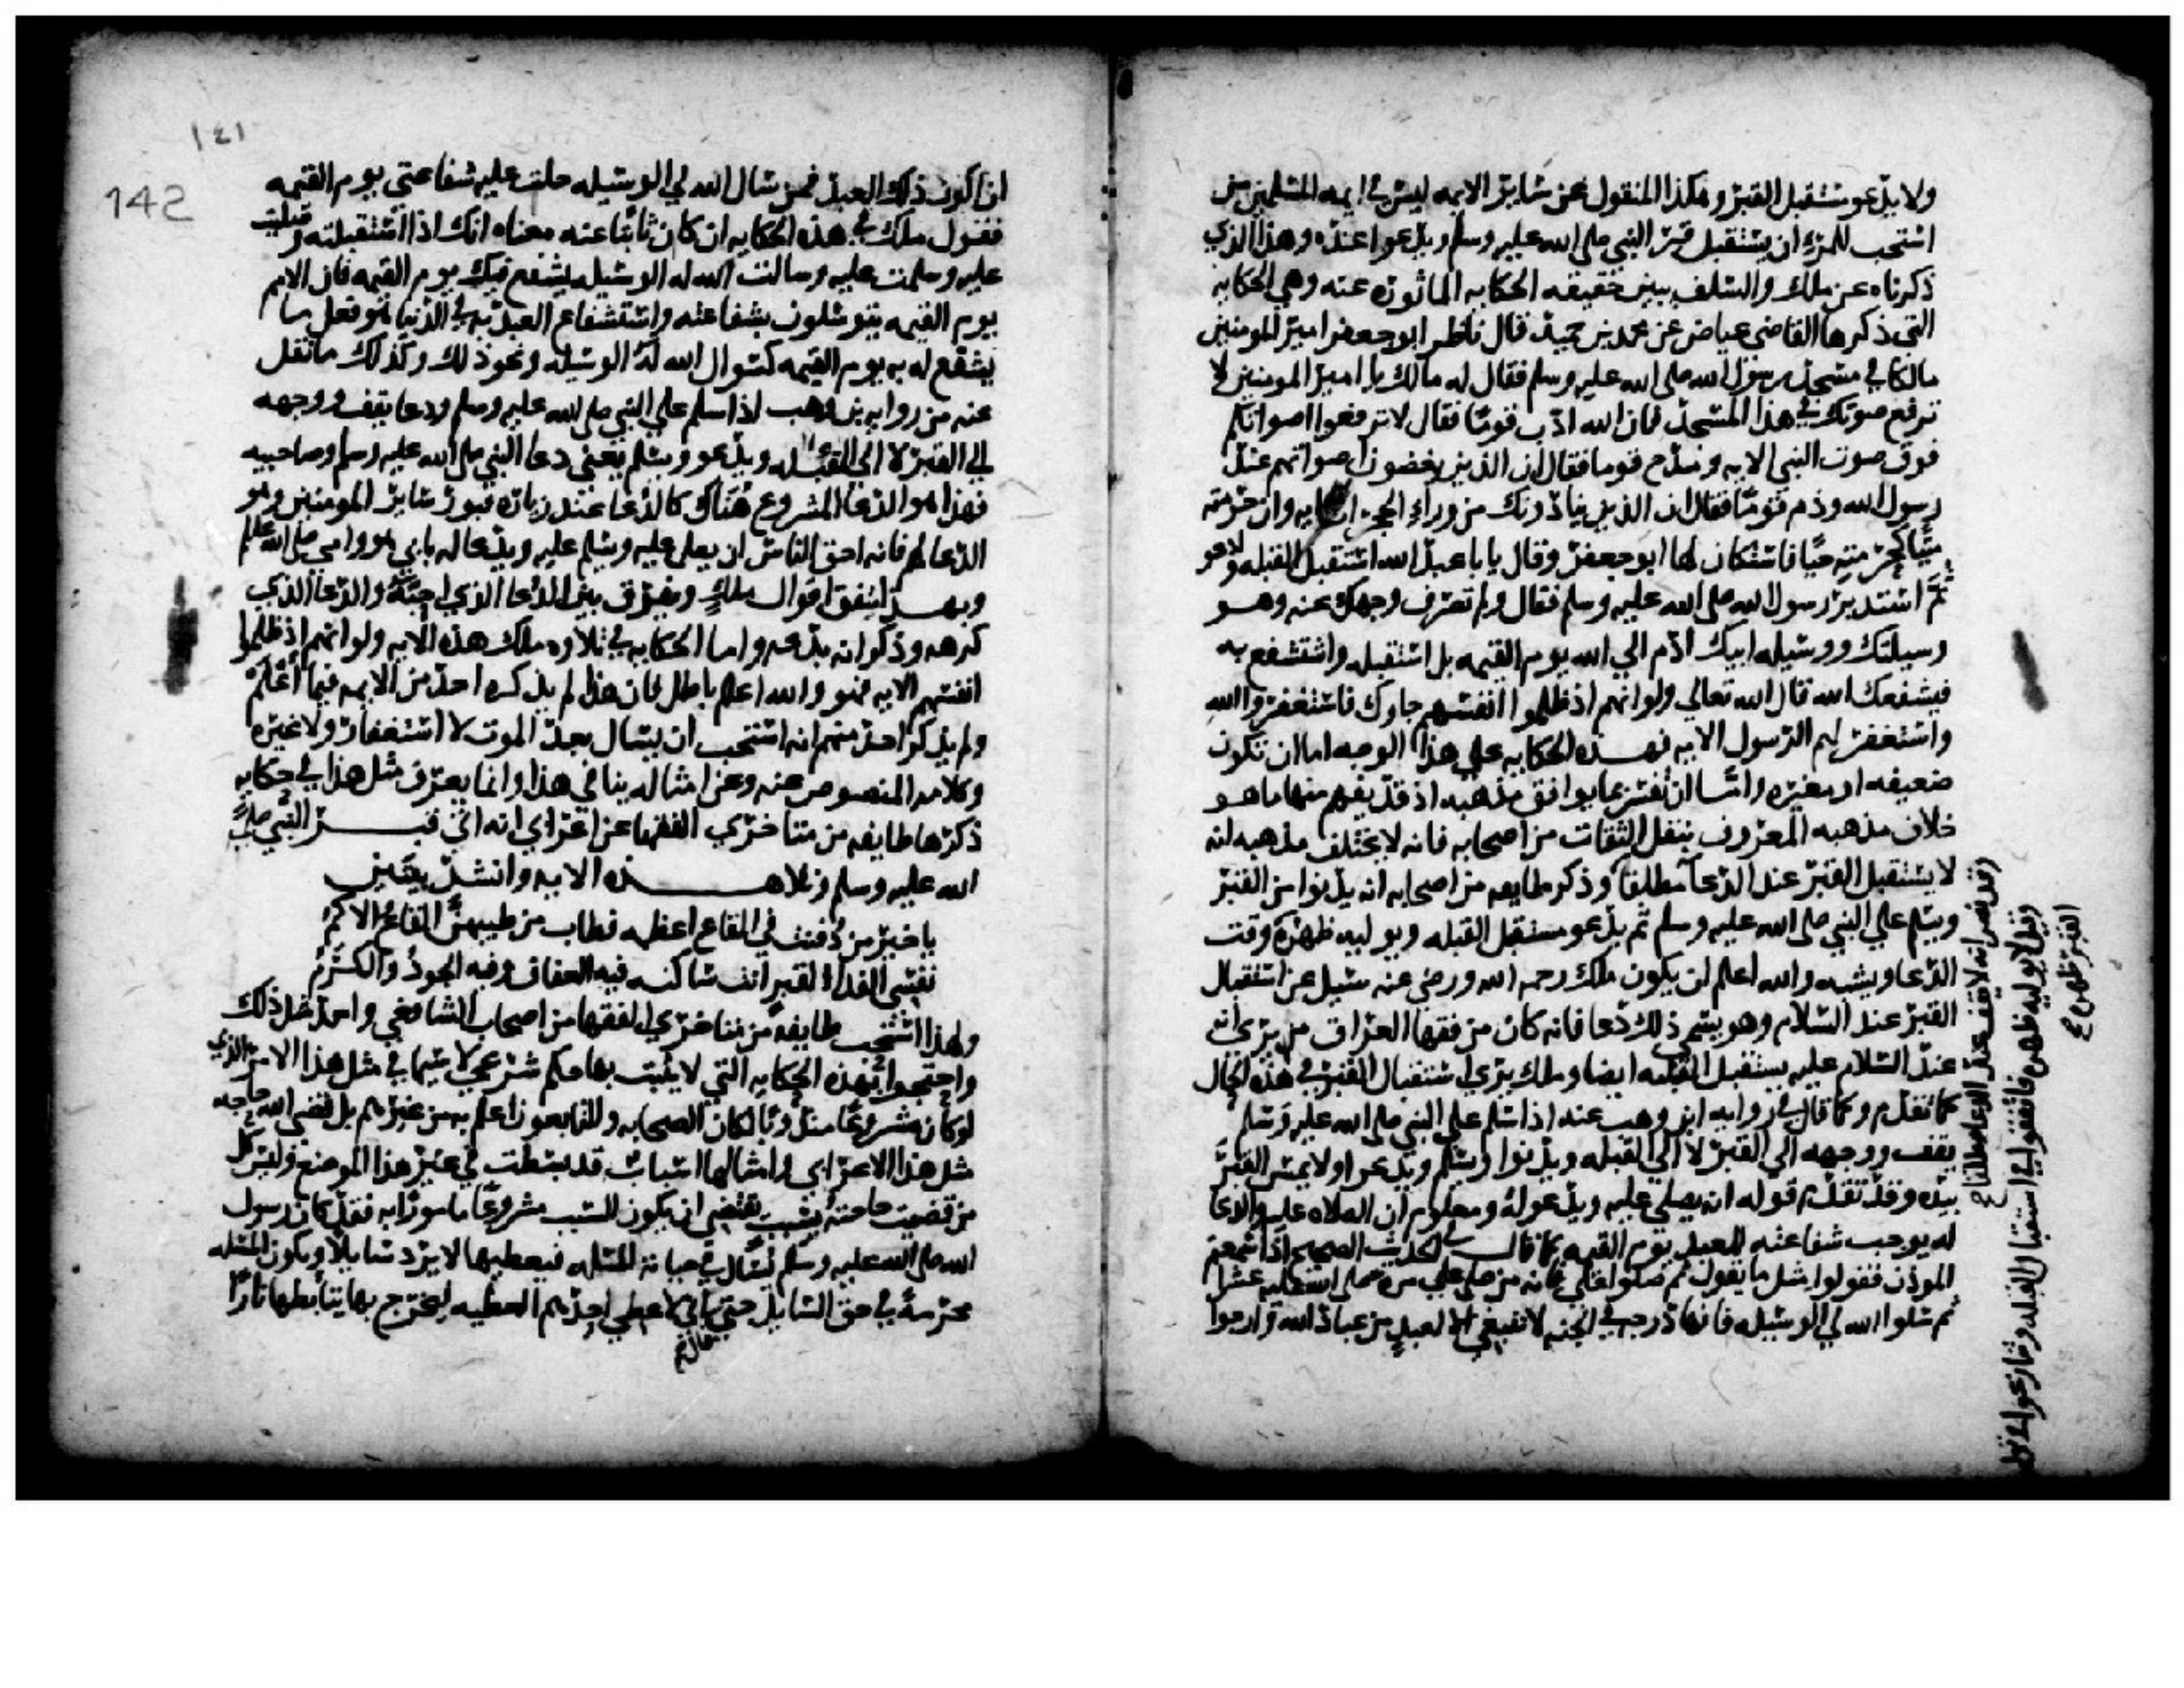 ولا يدعو مستقبل القبر وهكذا المنقول عن ساير الايمه ليس في ايمه المسلمين من
استحب للمرء ان يستقبل قبر النبي صلى الله عليه وسلم ويدعوا عنده وهذا الذي
ذكرناه عن ملك والسلف يبين حقيقه الحكايه الماثوره عنه وهي الحكايه
التى ذكرها القاضي عياض عن محمد بن حميد قال ناظر ابو جعفر امير المومنين
مالكا في مسجد رسول الله صلى الله عليه وسلم فقال له مالك يا امير المومنين لا
ترفع صوتك في هذا المسجد فان الله ادب قوما فقال لا ترفعوا اصواتكم
فوق صوت النبي الايه ومدح قوما فقال ان الذين يغضون اصواتهم عند
رسول الله وذم قوما فقال ان الذين ينادونك من وراء الحجرات الايه وان حرمته
ميتا كحرمته حيا فاستكان لها ابو جعفر وقال يا با عبد الله استقبل القبله وادعو
ثم استدبر رسول الله صلى الله عليه وسلم فقال ولم تصرف وجهك عنه وهو
وسيلتك ووسيله ابيك ادم الي الله يوم القيمه بل استقبله واستشفع به
فيشفعك الله قال الله تعالي ولو انهم اذ ظلموا انفسهم جاوك فاستغفروا الله
واستغفر لهم الرسول الايه فهذه الحكايه على هذا الوجه اما ان تكون
ضعيفه او مغيره واما ان تفسر بما يوافق مذهبه اذ قد يفهم منها ما هو
خلاف مذهبه المعروف بنقل الثقات من اصحابه فانه لا يختلف مذهبه انه
لا يستقبل القبر عند الدعا مطلقا وذكر طايفه من اصحابه انه يدنوا من القبر
ويسلم علي النبي صلى الله عليه وسلم ثم يدعو مستقبل القبله ويوليه ظهره وقت
الدعا ويشبه والله اعلم ان يكون ملك رحمه الله ورضي عنه سيل عن استقبال
القبر عند السلام وهو يسمي ذلك دعا فانه كان من فقها العراق من يري انه
عند السلام عليه يستقبل القبله ايضا وملك يري استقبال القبر في هذه الحال
كما تقدم وكما قال في روايه ابن وهب عنه اذا سلم علي النبي صلى الله عليه وسلم
يقف ووجهه الي القبر لا الي القبله ويدنوا ويسلم ويدعوا ولا يمس القبر
بيده وقد تقدم قوله انه يصلي عليه ويدعو له ومعلوم ان الصلاه عليه والدعا
له يوجب شفاعته للعبد يوم القيمه كما قال في الحديث الصحيح اذا سمعتم
الموذن فقولوا مثل ما يقول ثم صلوا علي فانه من صلي علي مره صلى الله عليه عشرا
ثم سلوا الله لي الوسيله فانها درجه في الجنه لا تنبغي الا لعبد من عباد الله وارجوا
وقد نص انه لا يقف عند الدعا مطلقا
وقيل لا يوليه ظهره فاتفقوا في استقبال القبله
القبر ظهره
١٤١
142
ان اكون ذلك العبد فمن سال الله لي الوسيله حلت عليه شفاعتي يوم القيمه
فقول ملك في هذه الحكايه ان كان ثابتا عنه معناه انك اذا استقبلته وصليت
عليه وسلمت عليه وسالت الله له الوسيله يشفع فيك يوم القيمه فان الامم
يوم القيمه يتوسلون بشفاعته واستشفاع العبد به في الدنيا هو فعل ما
يشفع له به يوم القيمه كسوال الله له الوسيله ونحو ذلك وكذلك ما نقل
عنه من روايه بن وهب اذا سلم علي النبي صلى الله عليه وسلم ودعا يقف ووجهه
الي القبر لا الى القبله ويدعو ويسلم يعني دعا النبي صلى الله عليه وسلم وصاحبيه
فهذا هو الدعا المشروع هناك كالدعا عند زياره قبور ساير المومنين وهو
الدعا لهم فانه احق الناس ان يصلى عليه ويسلم عليه ويدعا له بابي هو وامي صلى الله عليه وسلم
وبهذا تتفق اقوال ملك ويفرق بين الدعا الذي احبه والدعا الذي
كرهه وذكر انه بدعه واما الحكايه في تلاوه ملك هذه الايه ولو انهم اذ ظلموا
انفسهم الايه فهو والله اعلم باطل فان هذا لم يذكره احد من الايمه فيما اعلم
ولم يذكر احد منهم انه استحب ان يسال بعد الموت لا استغفار ولا غيره
وكلامه المنصوص عنه وعن امثاله ينافي هذا وانما يعرف مثل هذا في حكايه
ذكرها طايفه من متاخري الفقها عن اعرابي انه اتي قبر النبي صلى
الله عليه وسلم وتلا هذه الايه وانشد بيتين
يا خير من دفنت في القاع اعظمه فطاب من طيبهن القاع والاكم
نفسي الفداء لقبر انت ساكنه فيه العفاف وفيه الجود والكرم
ولهذا استحب طايفه من متاخري الفقها من اصحاب الشافعي واحمد مثل ذلك
واحتجوا بهذه الحكايه التي لا يثبت بها حكم شرعي لا سيما في مثل هذا الامر الذي
لو كان مشروعا مندوبا لكان الصحابه والتابعون اعلم به من غيرهم بل قضى الله حاجه
مثل هذا الاعرابي وامثالها اسباب قد بسطت في غير هذا الموضع وليس كل
من قضيت حاجته بسبب يقتضي ان يكون السبب مشروعا مامورا به فقد كان رسول
الله صلى الله عليه وسلم يسال في حياته المسله فيعطيها لا يرد سايلا وتكون المسله
محرمه في حق السايل حتى قال اني لاعطي احدهم العطيه ليخرج بها يتابطها نارا